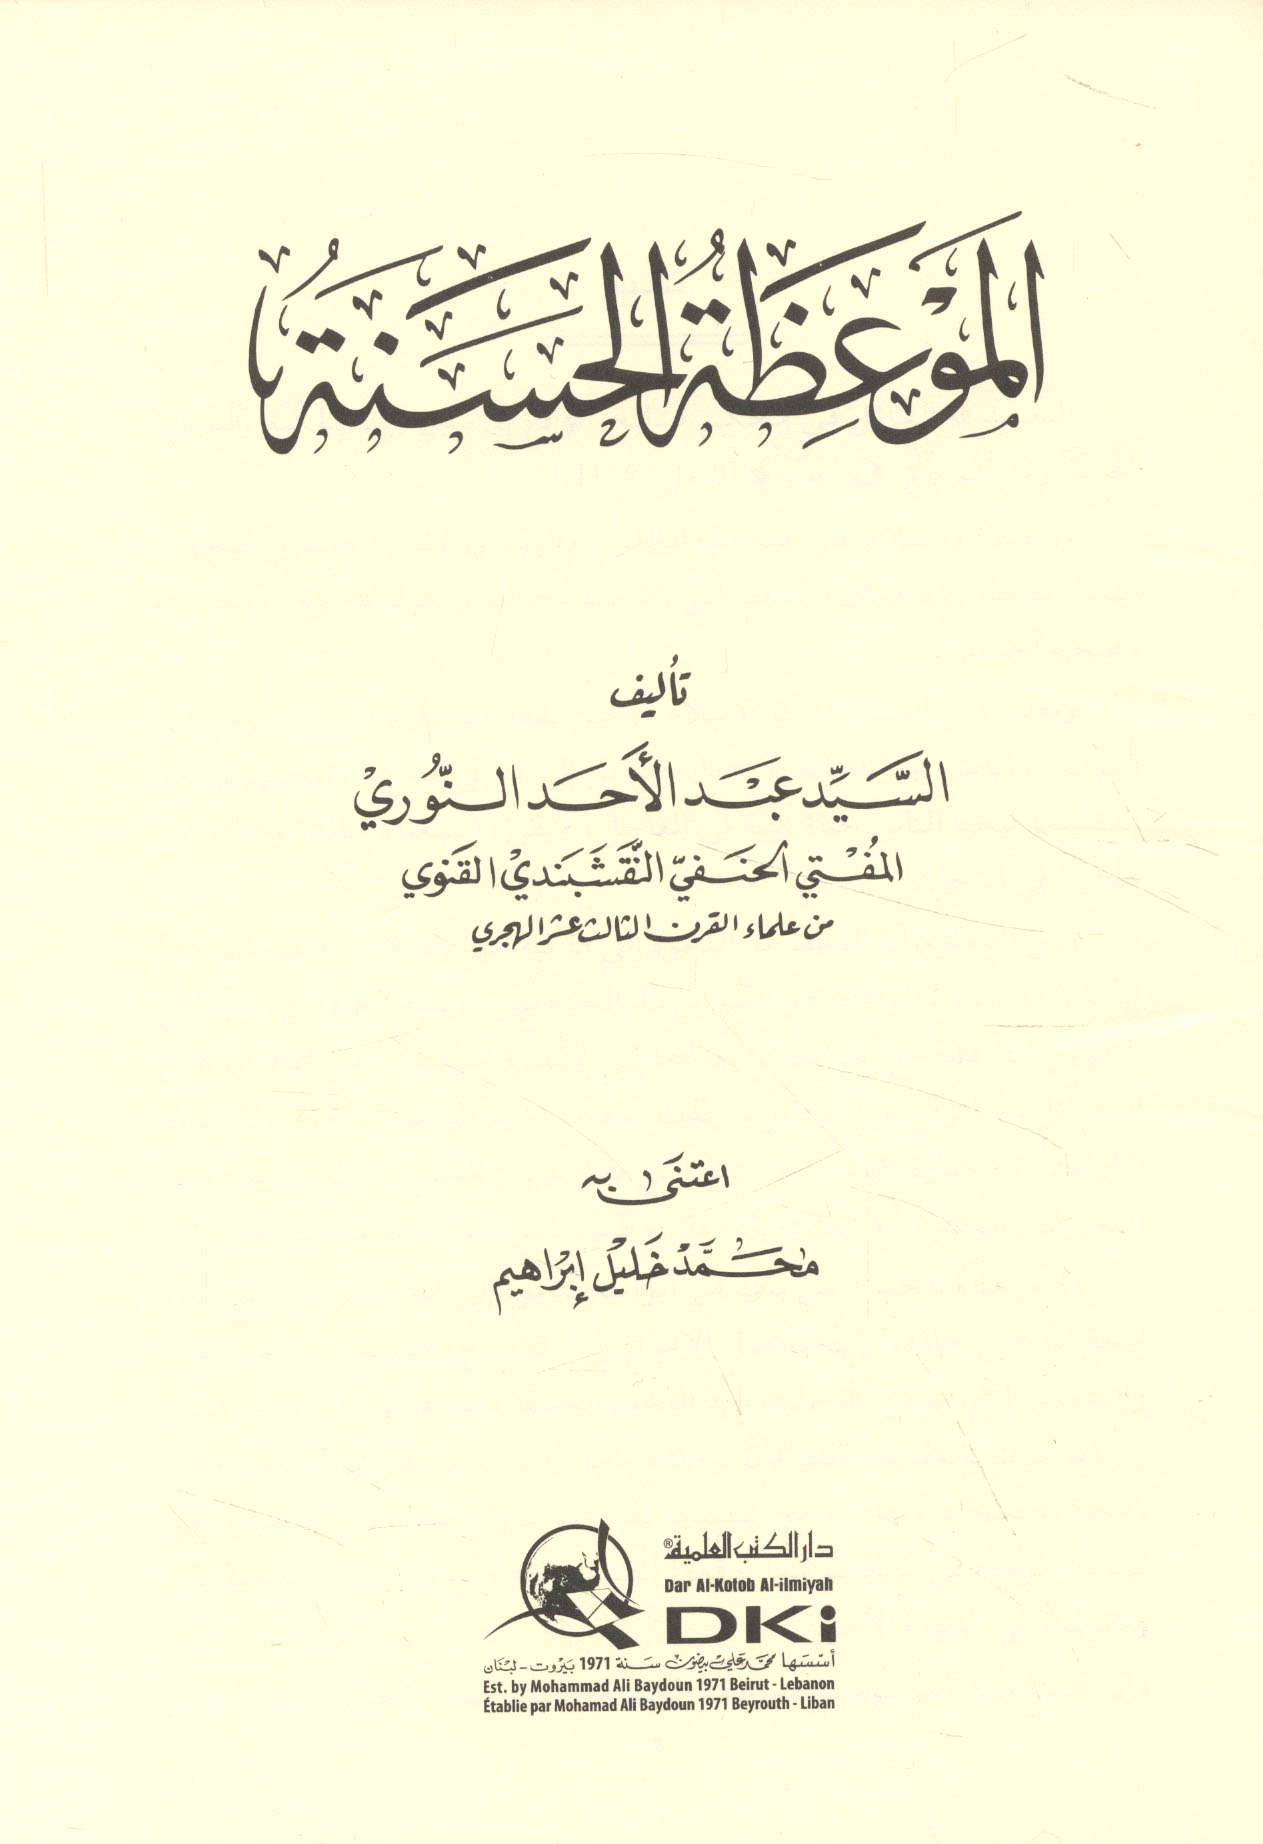 المَوْعِظَةُ الحَسَنَةُ
تأليف
السَّيِّد عَبْد الأَحَد النُّوري
المُفْتي الحَنَفيّ النَّقشَبَنديْ القَنَوي
من علماء القرن الثالث عشر الهجري
اعتَنَى به
محَمَّد خَليْل إبْراهيم
دار الكتب العلمية®
Dar Al-Kotob Al-ilmiyah
DKi
أسّسَها محمَّد عَلي بيضُون سَنة 1971 بَيْروت - لبْنَان
Est. by Mohammad Ali Baydoun 1971 Beirut - Lebanon
Établie par Mohamad Ali Baydoun 1971 Beyrouth - Liban